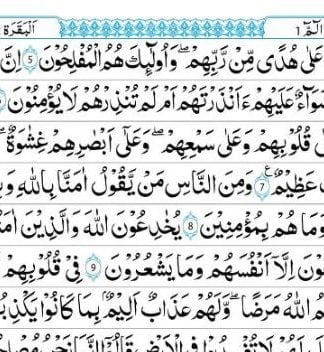 الٓمّٓ ١ اَلْبَقَرَة
عَلٰى هُدًى مِّنْ رَّبِّهِمْ ۖ وَاُولٰٓئِكَ هُمُ الْمُفْلِحُوْنَ ٥ اِنَّ
سَوَآءٌ عَلَيْهِمْ ءَاَنْذَرْتَهُمْ اَمْ لَمْ تُنْذِرْهُمْ لَا يُؤْمِنُوْنَ
قُلُوْبِهِمْ وَعَلٰى سَمْعِهِمْ ۖ وَعَلٰٓى اَبْصَارِهِمْ غِشَاوَةٌ
عَظِيْمٌ ٧ وَمِنَ النَّاسِ مَنْ يَّقُوْلُ اٰمَنَّا بِاللّٰهِ
وَمَا هُمْ بِمُؤْمِنِيْنَ ٨ يُخٰدِعُوْنَ اللّٰهَ وَالَّذِيْنَ
اِلَّآ اَنْفُسَهُمْ وَمَا يَشْعُرُوْنَ ٩ فِيْ قُلُوْبِهِمْ
اللّٰهُ مَرَضًا ۚ وَلَهُمْ عَذَابٌ اَلِيْمٌ بِمَا كَانُوْا